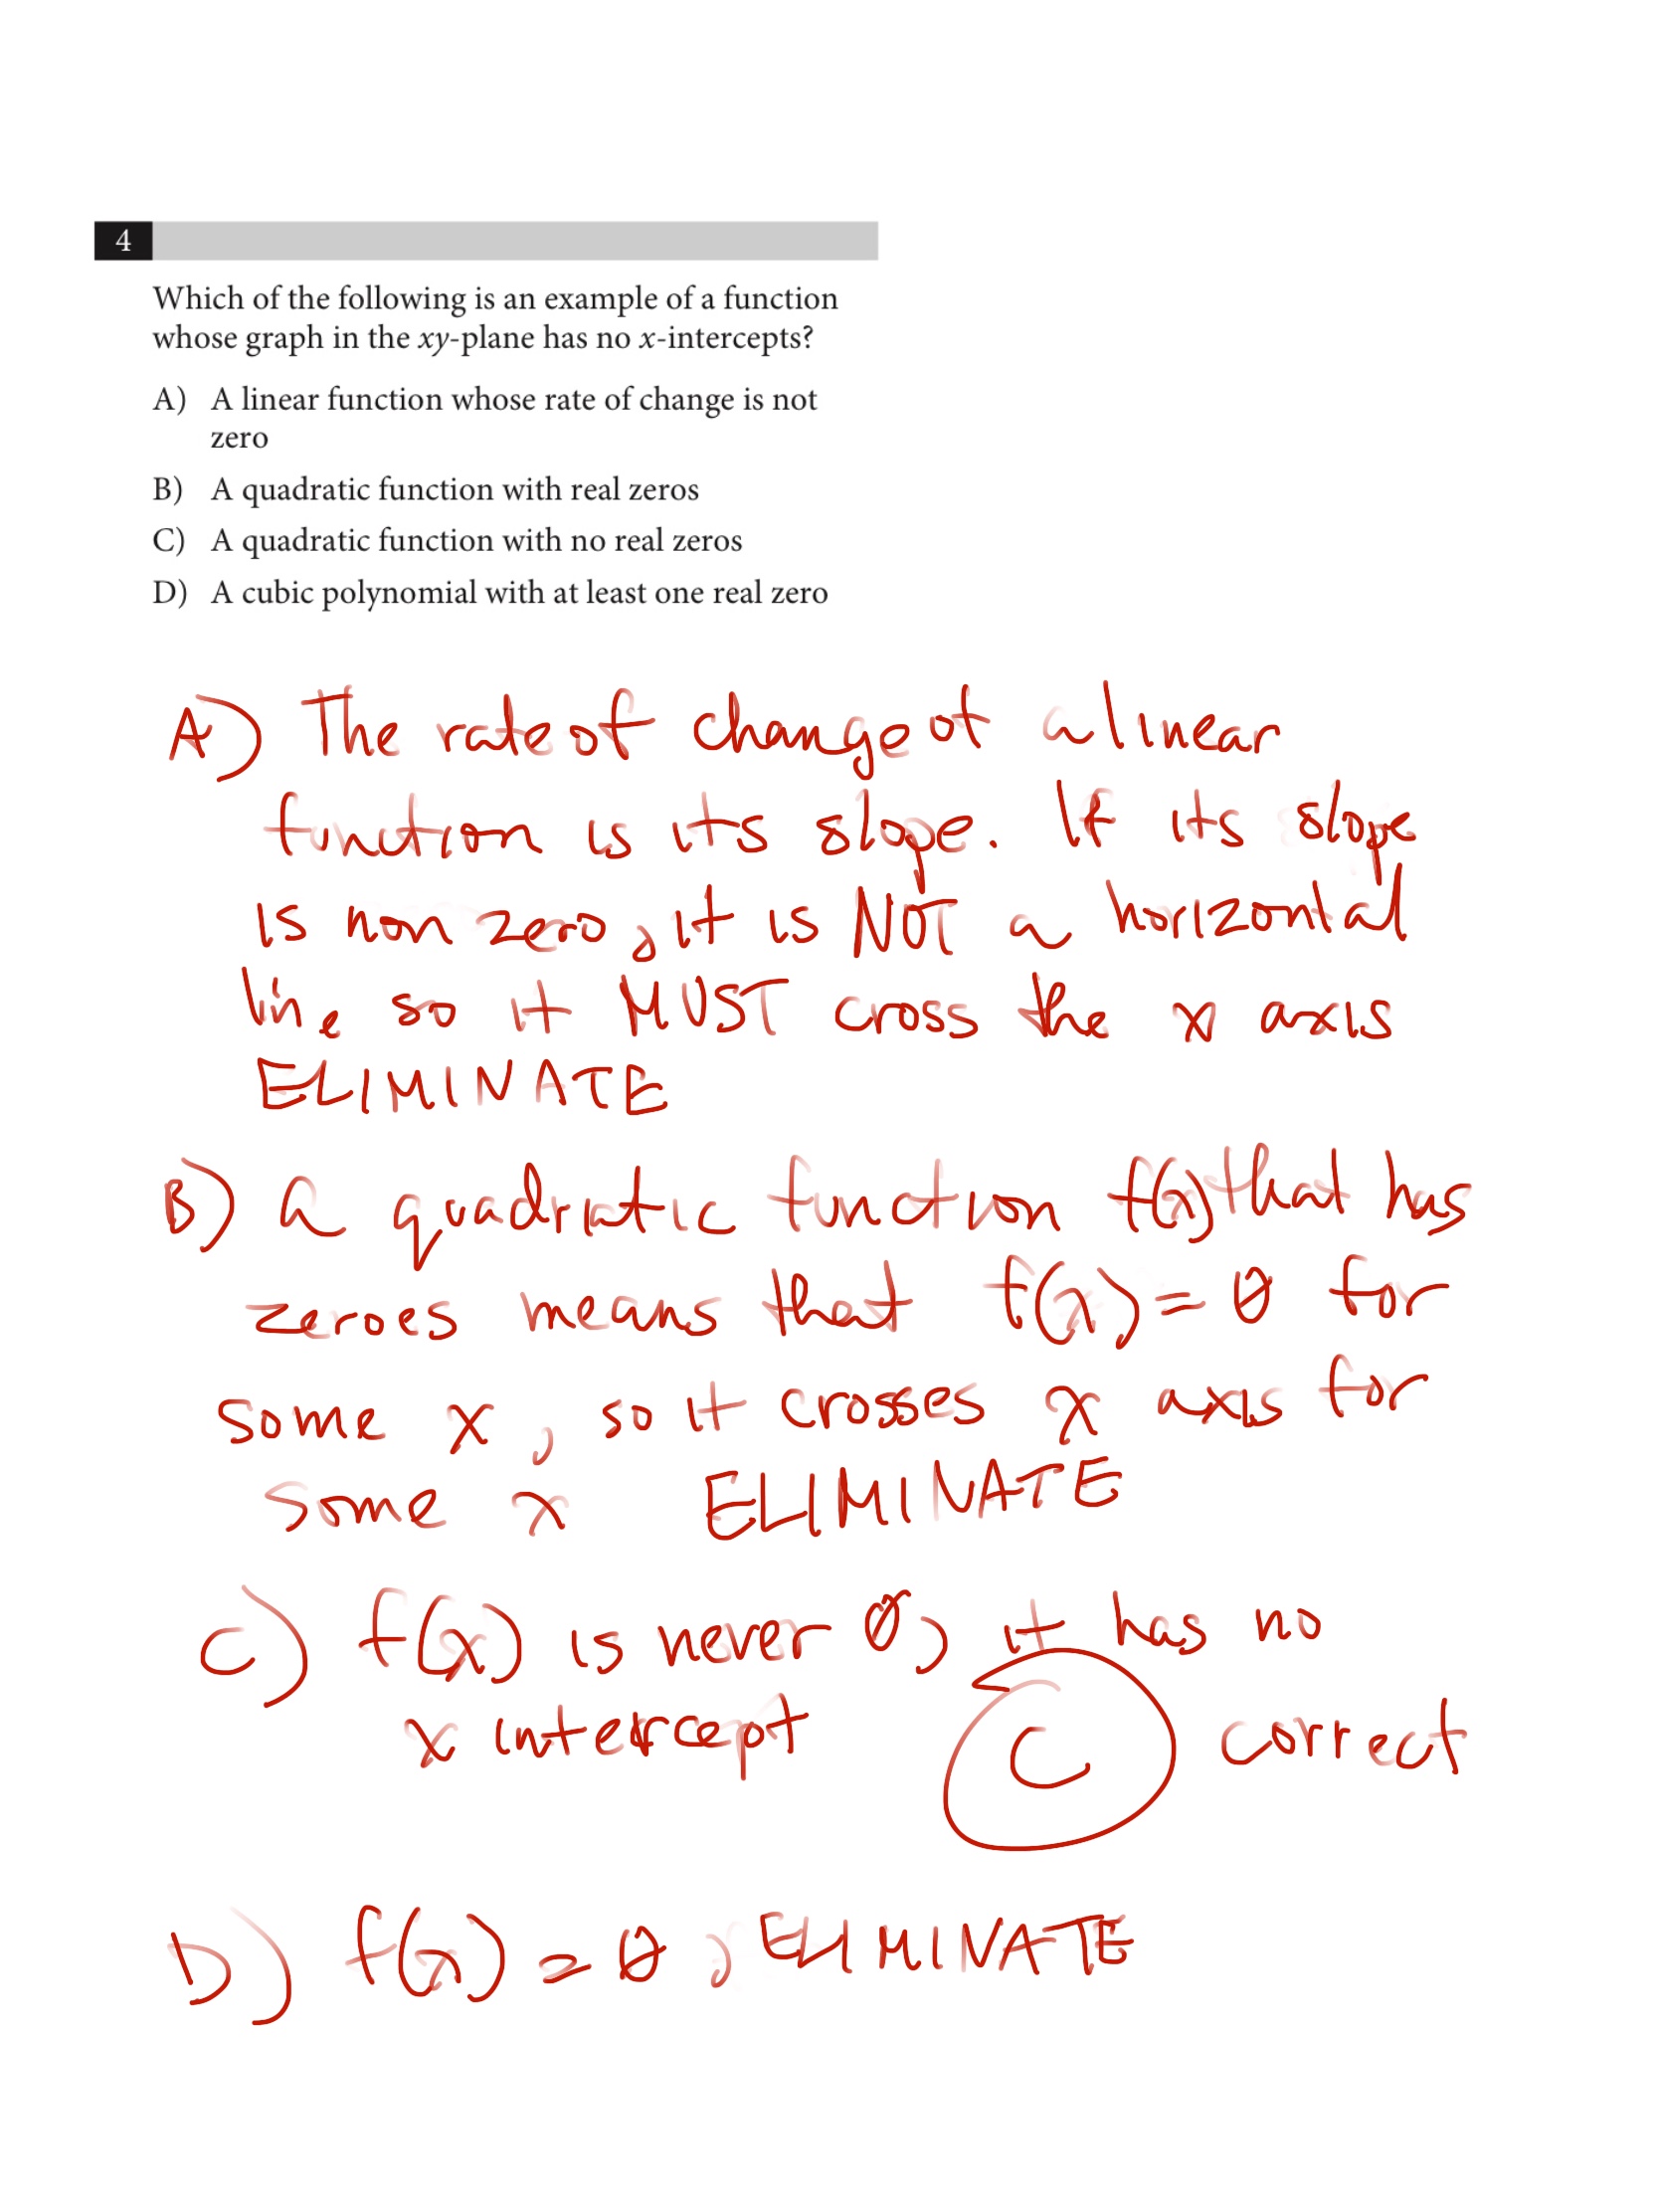 4
Which of the following is an example of a function
whose graph in the xy-plane has no x-intercepts?
A) A linear function whose rate of change is not
zero
B) A quadratic function with real zeros
C) A quadratic function with no real zeros
D) A cubic polynomial with at least one real zero
A) The rate of change of a linear
function is its slope. If its slope
is non zero, it is NOT a horizontal
line so it MUST cross the x axis
ELIMINATE
B) a quadratic function f(x) that has
zeroes means that f(x) = 0 for
some x, so it crosses x axis for
some x ELIMINATE
C) f(x) is never 0, it has no
x intercept C correct
D) f(x) = 0, ELIMINATE